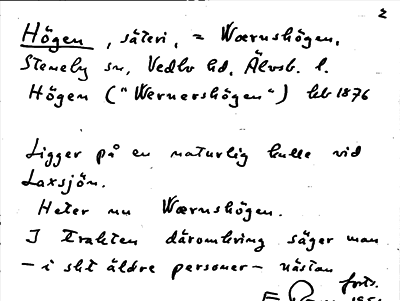 2
Högen, säteri, = Wærnshögen,
Steneby sn, Vedbo hd, Älvsb. l.
Högen ("Wernershögen") hb 1876
Ligger på en naturlig kulle vid
Laxsjön.
Heter nu Wærnshögen.
I trakten däromkring säger man
– i sht äldre personer – nästan
forts.